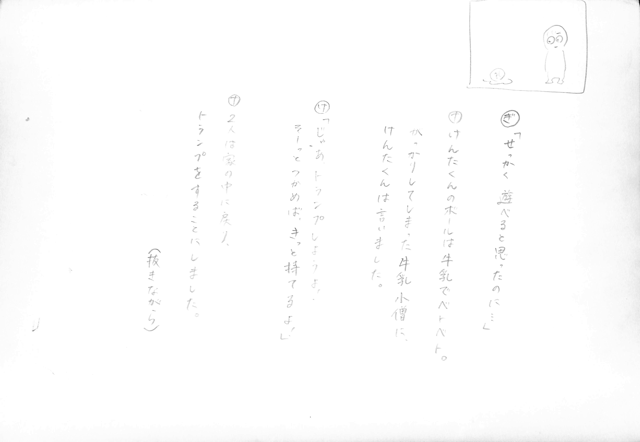 ぎ「せっかく遊べると思ったのに…」
ナ けんたくんのボールは牛乳でベトベト。
がっかりしてしまった牛乳小僧に、
けんたくんは言いました。
け「じゃあトランプしようよ!
そーっとつかめば、きっと持てるよ!」
ナ 2人は家の中に戻り、
トランプをすることにしました。
(抜きながら)